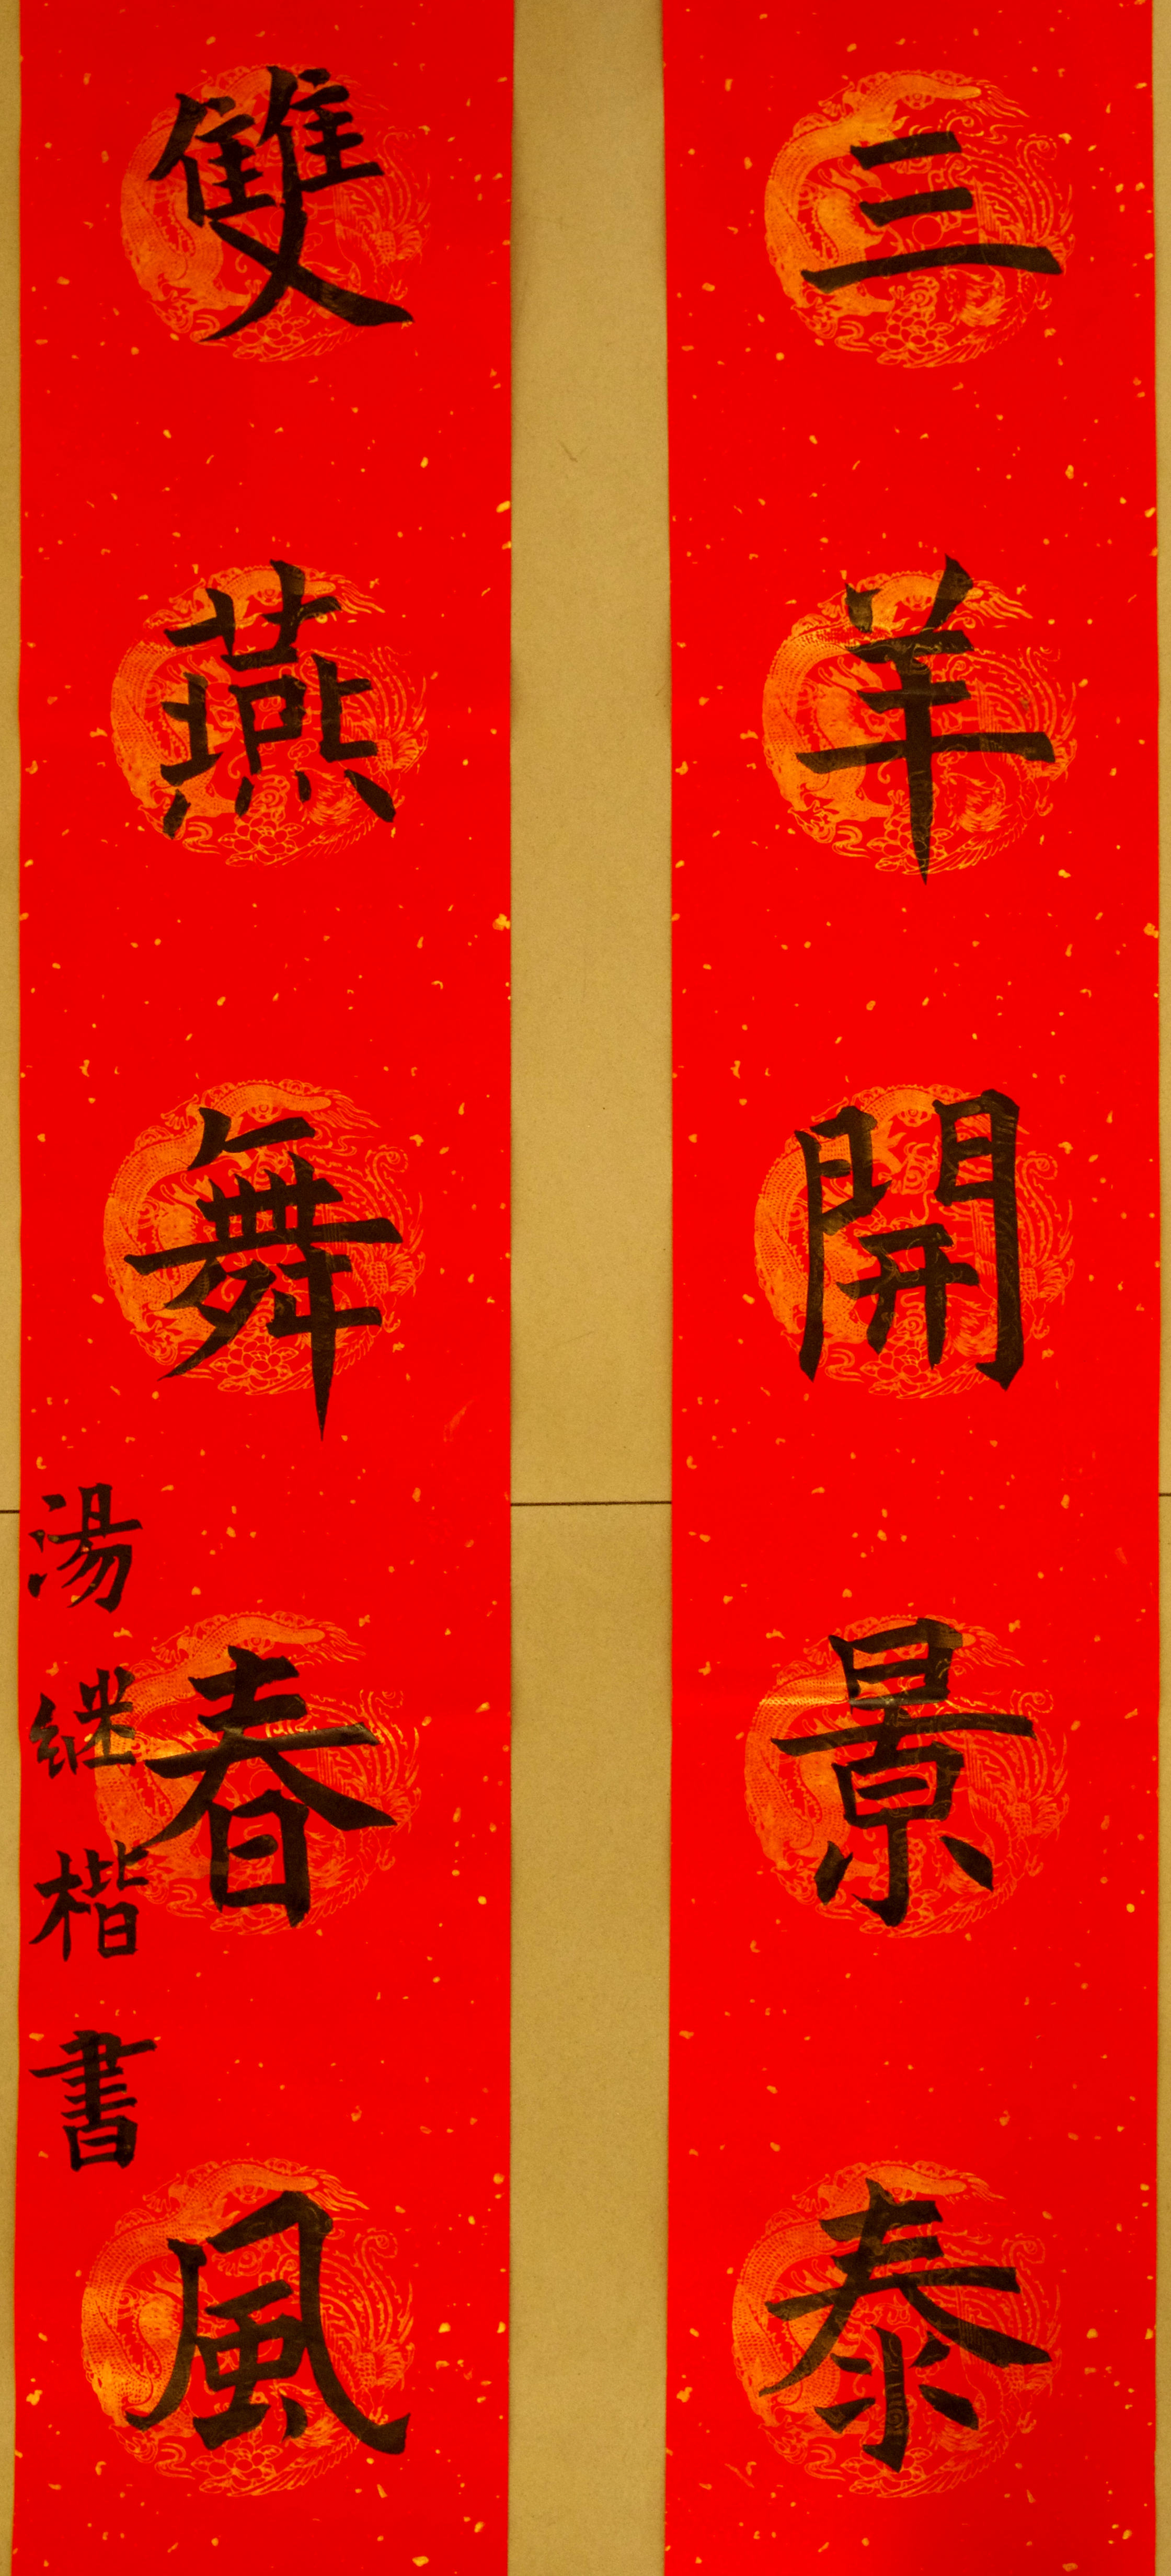 三羊開景泰
雙燕舞春風
湯继楷書